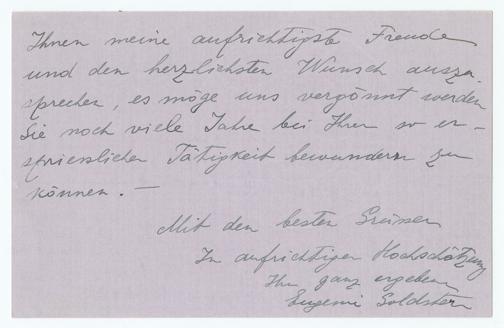 Ihnen meine aufrichtigste Freude
und den herzlichsten Wunsch auszu-
sprechen, es möge uns vergönnt werden
Sie noch viele Jahre bei Ihrer so er-
spriesslichen Tätigkeit bewundern zu
können. —
Mit den besten Grüssen
In aufrichtiger Hochschätzung
Ihr ganz ergebener
Eugenie Goldstern